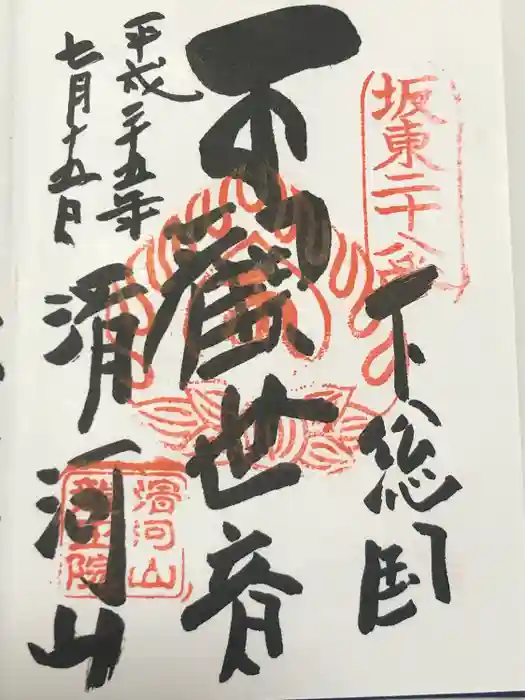 坂東二十八番
下総国
觀世音
平成二十五年
七月十五日
滑河山
滑河山
龍正院